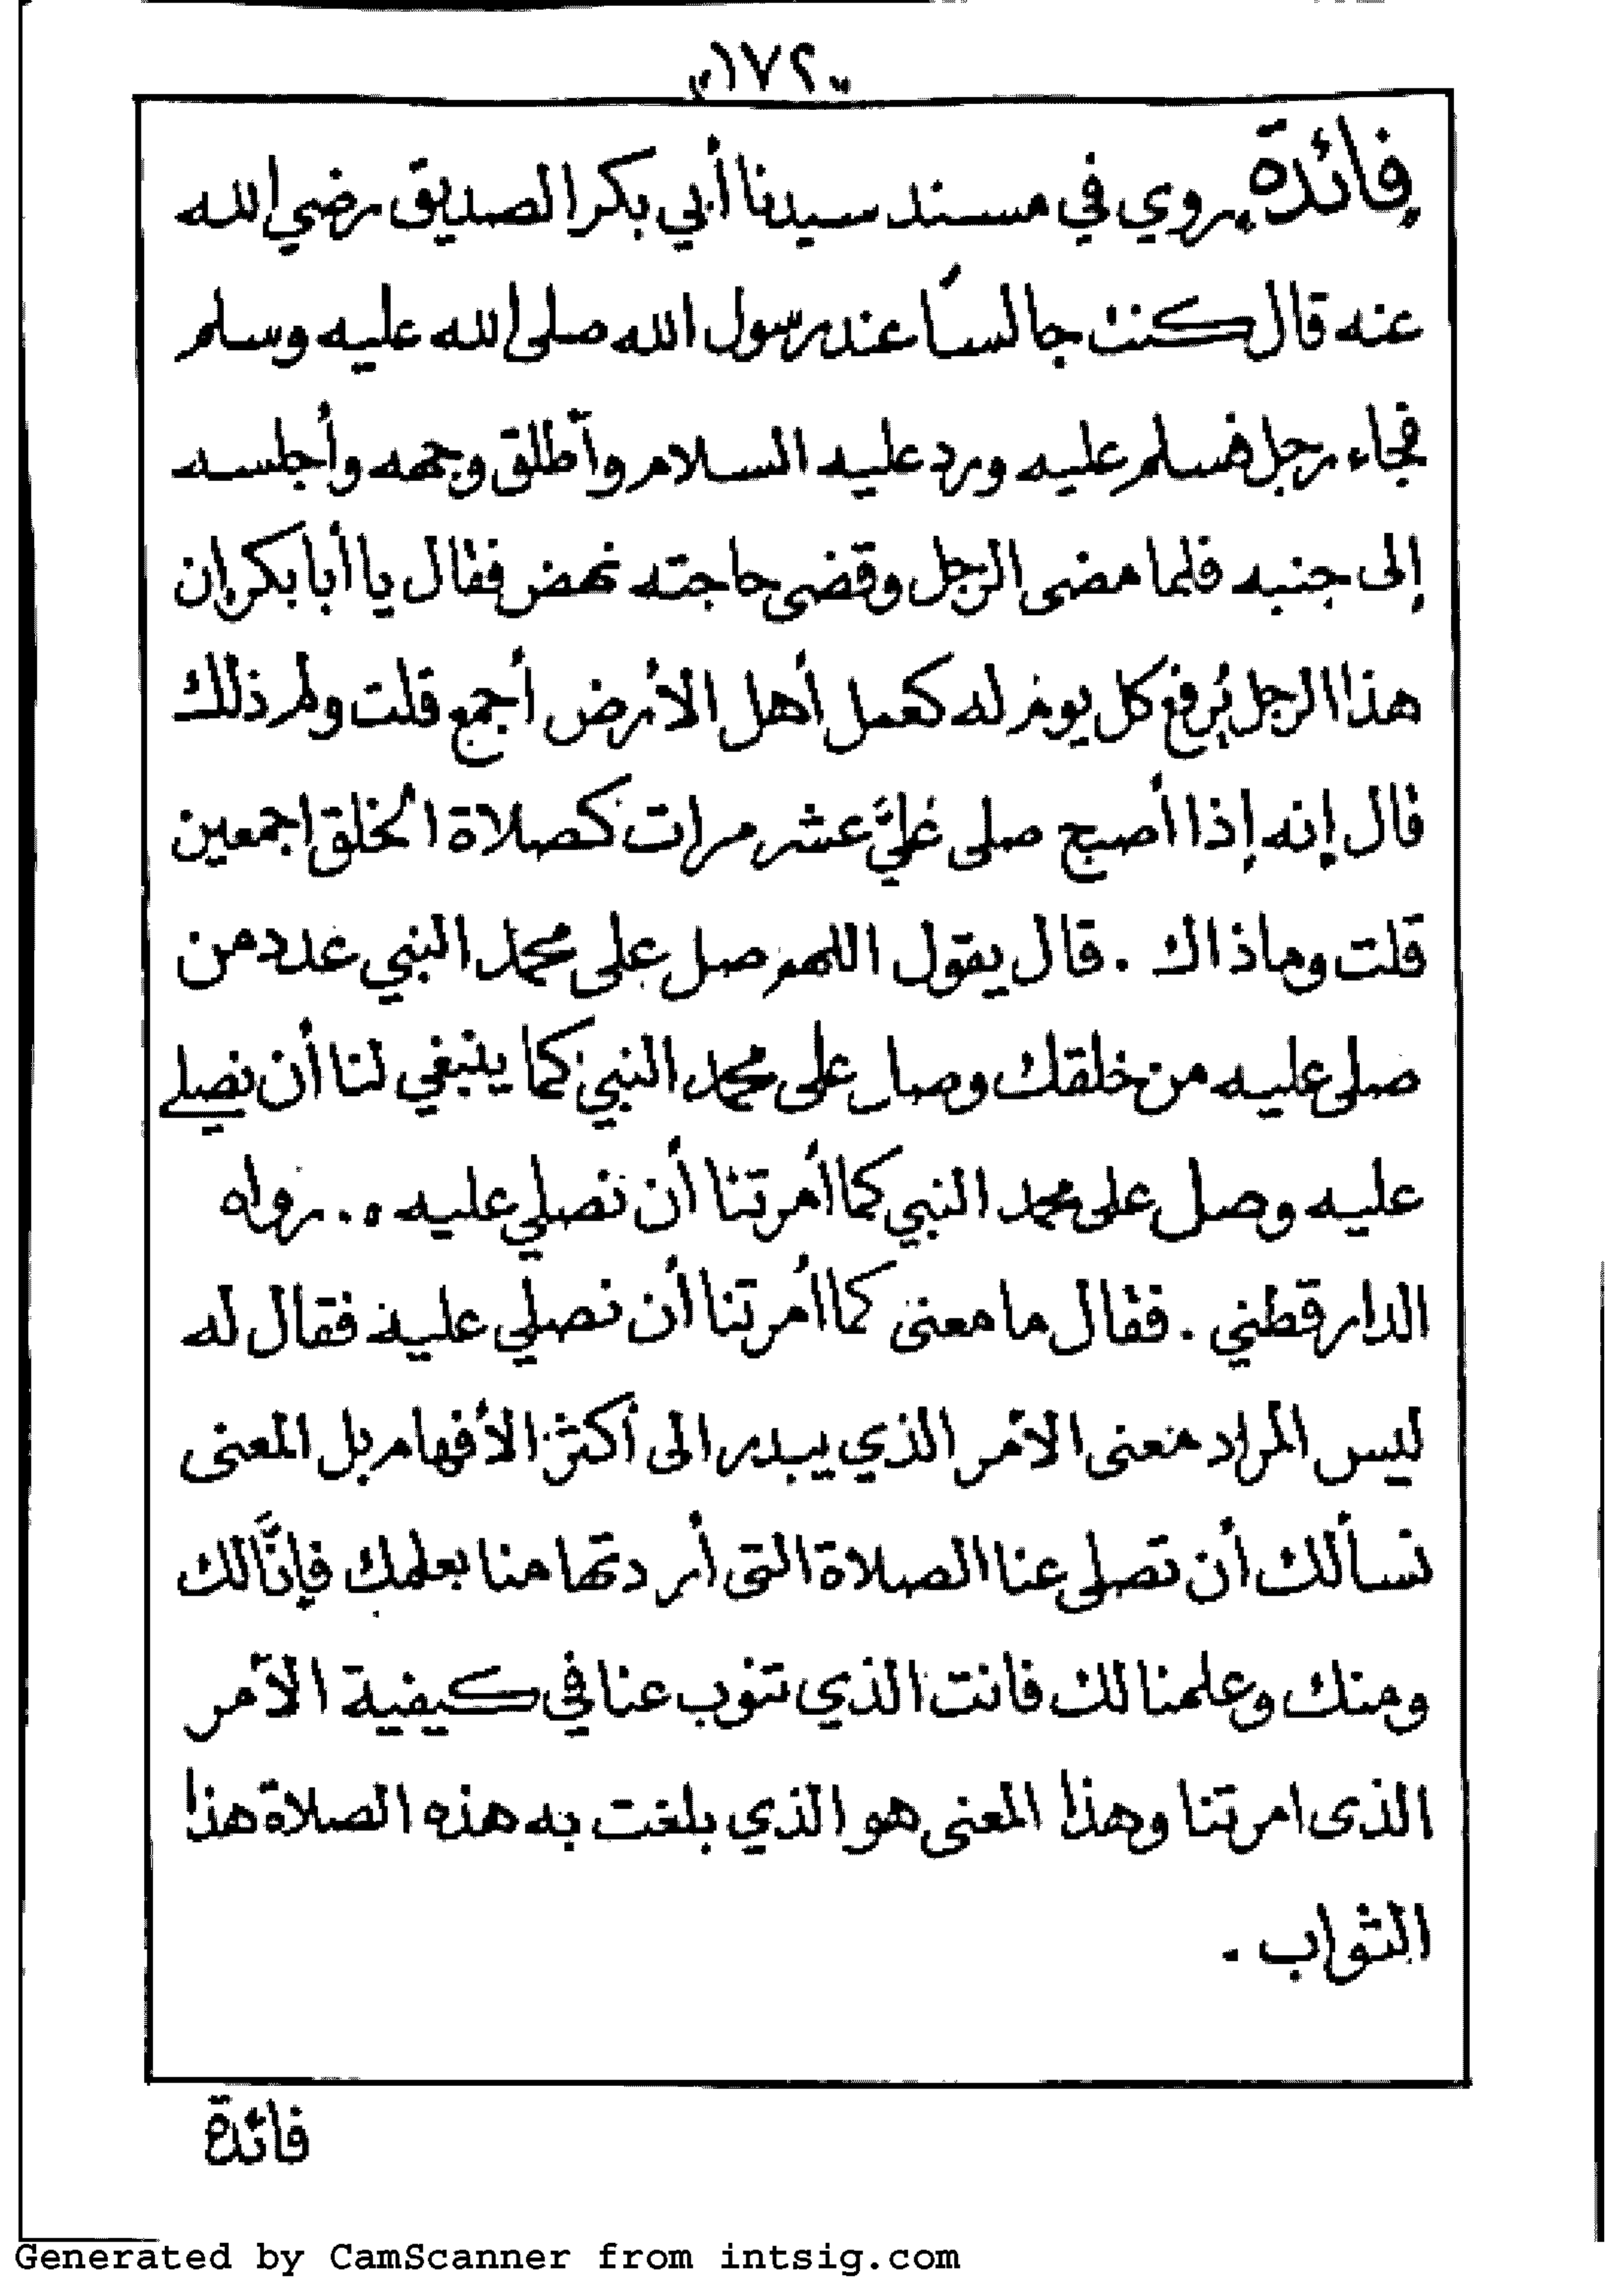 ١٧٢
فائدة روي في مسند سيدنا أبي بكر الصديق رضي الله
عنه قال كنت جالسًا عند رسول الله صلى الله عليه وسلم
فجاء رجل فسلم عليه ورد عليه السلام وأطلق وجهه وأجلسه
إلى جنبه فلما مضى الرجل وقضى حاجته نهض فقال يا أبا بكر إن
هذا الرجل يُرفع كل يوم له كعمل أهل الأرض أجمع قلت ولم ذلك
قال إنه إذا أصبح صلى عليَّ عشر مرات كصلاة الخلق اجمعين
قلت وماذاك . قال يقول اللهم صل على محمد النبي عدد من
صلى عليه من خلقك وصل على محمد النبي كما ينبغي لنا أن نصلي
عليه وصل على محمد النبي كما أمرتنا أن نصلي عليه ٠.. رواه
الدارقطني . فقال ما معنى كما أمرتنا أن نصلي عليه فقال له
ليس المراد معنى الأمر الذي يبدر الى أكثر الأفهام بل المعنى
نسألك أن تصلي عنا الصلاة التى أردتها منا بعلمك فإنَّا لك
ومنك وعلمنا لك فانت الذي تنوب عنا في كيفية الأمر
الذى امرتنا وهذا المعنى هو الذي بلغت به هذه الصلاة هذا
الثواب .
فائدة
Generated by CamScanner from intsig.com